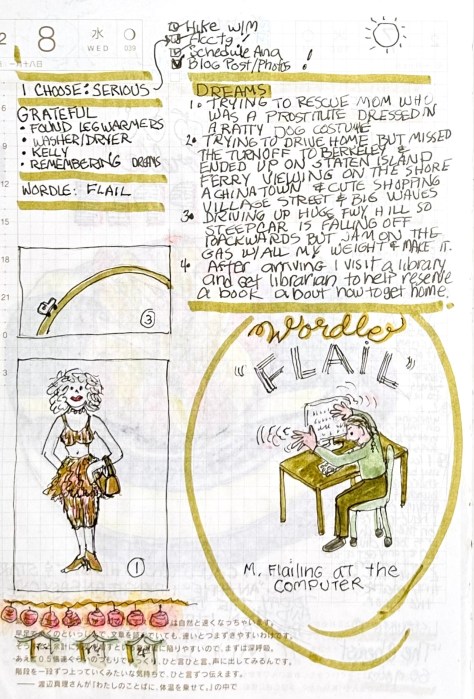 2
8
水
WED
039
一月十八日
Hike W/M
Acctg!
Schedule Ana
Blog Post/Photos!
I CHOOSE: SERIOUS
GRATEFUL
• FOUND LEGWARMERS
• WASHER/DRYER
• KELLY
• REMEMBERING DREAMS
WORDLE: FLAIL
DREAMS:
1. TRYING TO RESCUE MOM WHO
WAS A PROSTITUTE DRESSED IN
A RATTY DOG COSTUME
2. TRYING TO DRIVE HOME BUT MISSED
THE TURNOFF TO BERKELEY &
ENDED UP ON STATEN ISLAND
FERRY VIEWING ON THE SHORE
A CHINATOWN & CUTE SHOPPING
VILLAGE STREET & BIG WAVES
3. DRIVING UP HUGE FWY HILL SO
STEEP CAR IS FALLING OFF
BACKWARDS BUT JAM ON THE
GAS W/ALL MY WEIGHT & MAKE IT.
4. After arriving I visit a library
and get librarian to help reserve
a book about how to get home.
6
9
12
15
18
21
0
3
3
1
Wordle
"FLAIL"
M. Flailing at the
COMPUTER
は自然と遠くなっちゃいます。
階段を一段ずつ上っていくみたいな気持ちで、ひと言ずつ伝えます。
── 渡辺真理さんが『わたしのことばに、体温を乗せて。』の中で